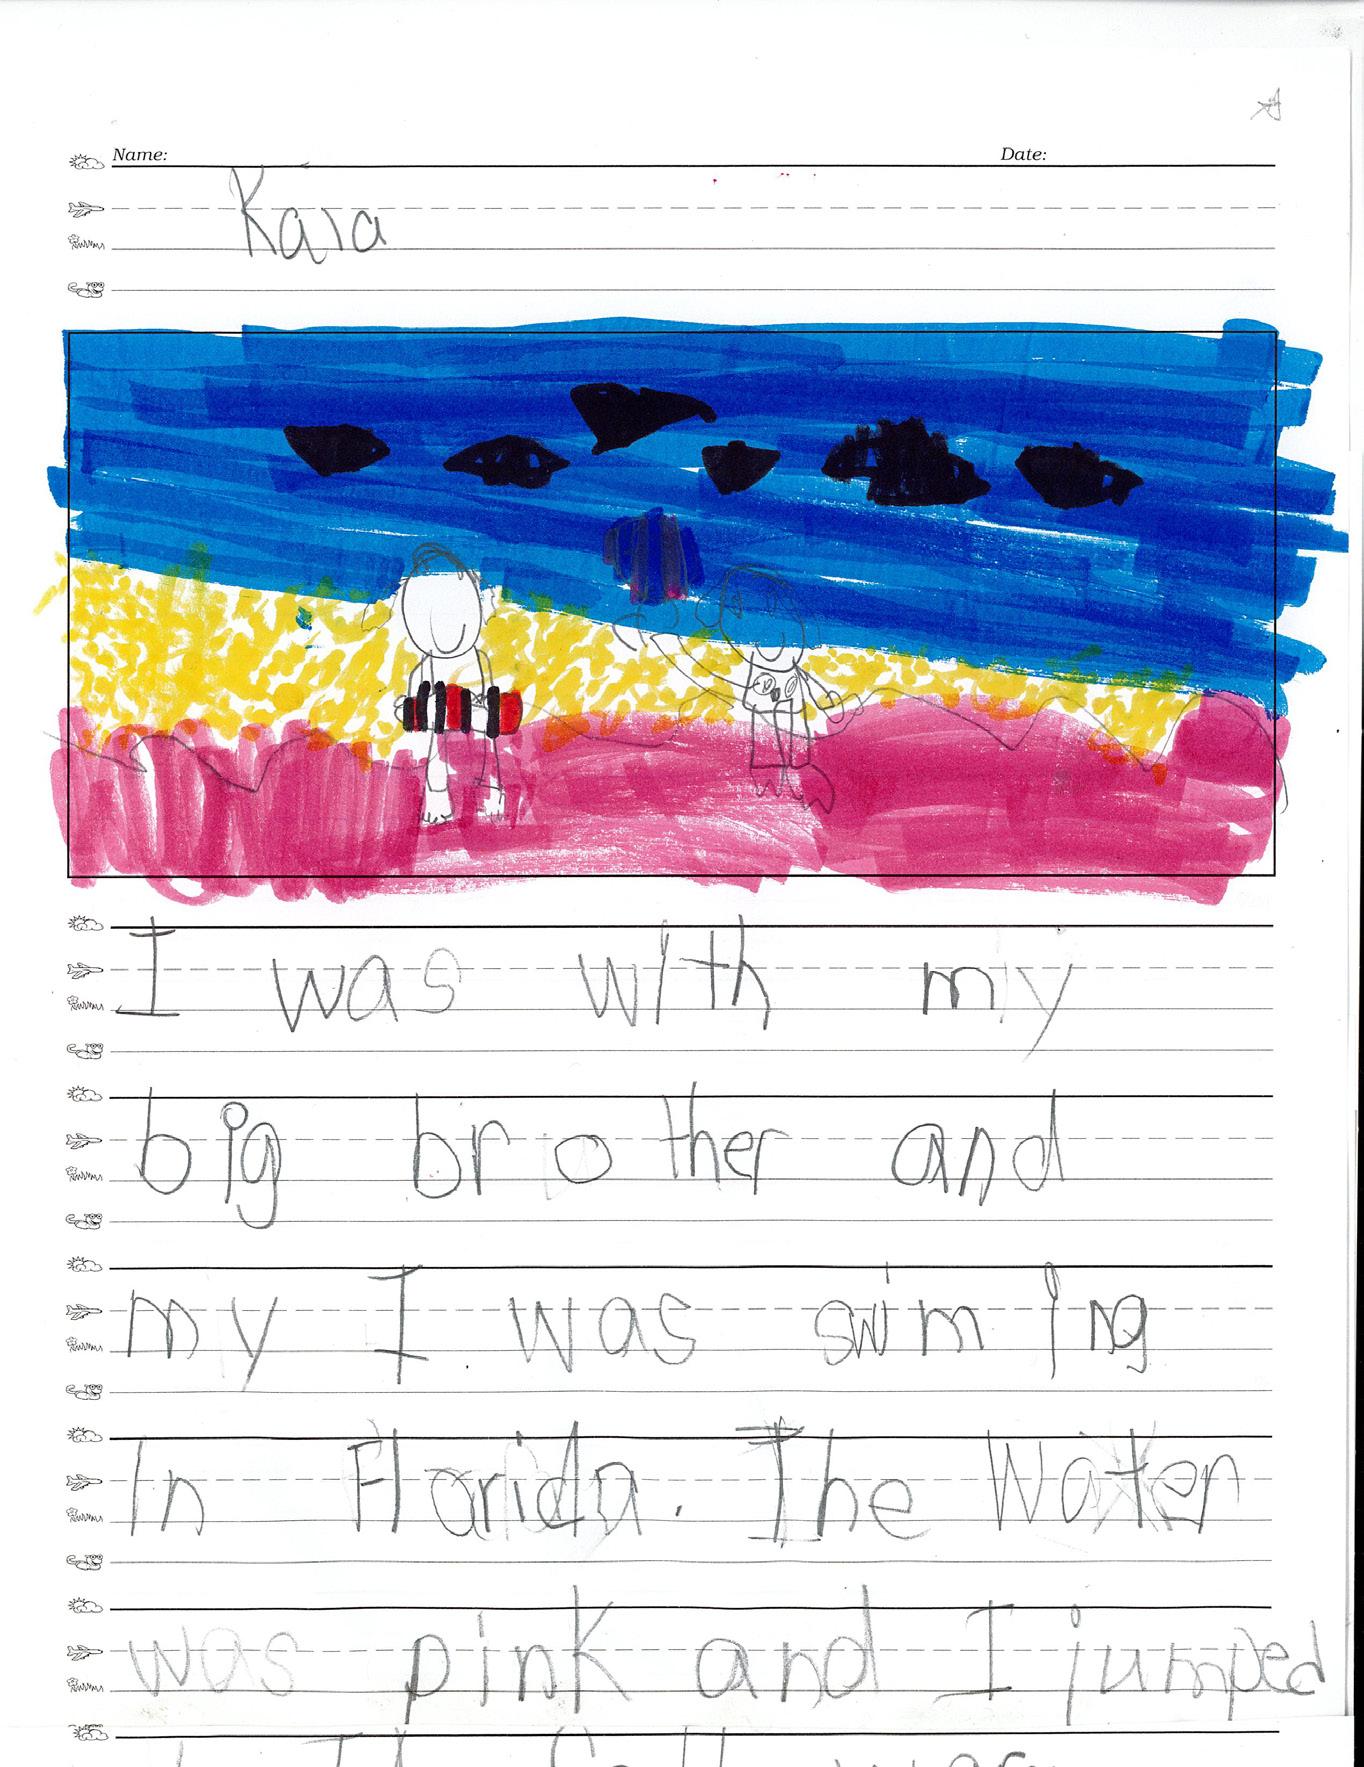 Name: Date:
Kaia
I was with my
big brother and
my I was swiming
In Florida. The Water
was pink and I jumped